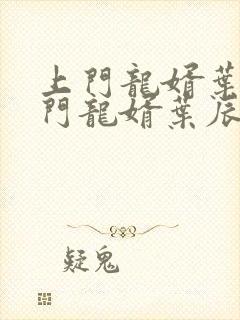 上門龍婿葉
門龍婿葉辰
疑鬼